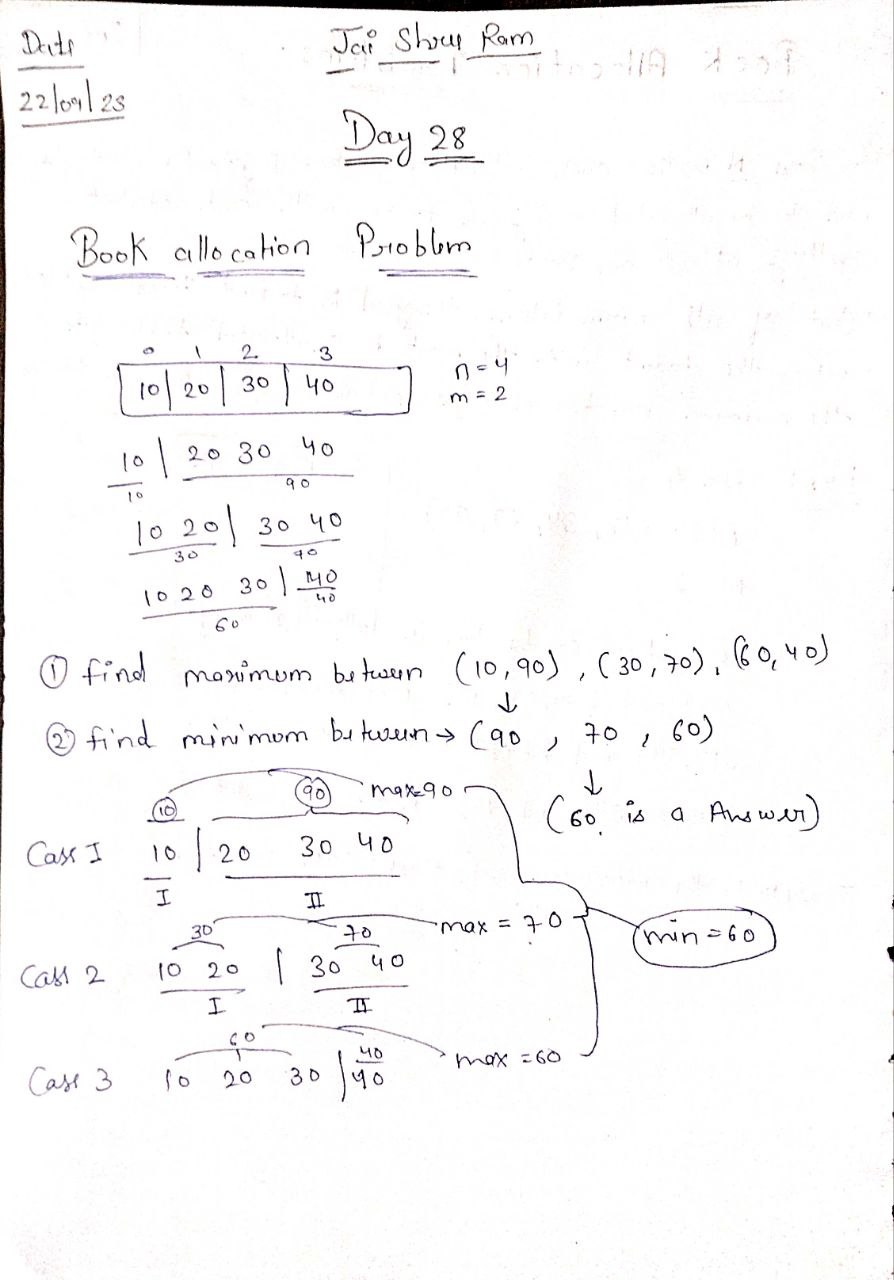 Date
Jai Shree Ram
22/09/23
Day 28
Book allocation Problem
0 1 2 3
10 | 20 | 30 | 40
n = 4
m = 2
10 | 20 30 40
10 90
10 20 | 30 40
30 70
10 20 30 | 40
60 40
① find maximum between (10,90), (30,70), (60,40)
↓
② find minimum between → (90, 70, 60)
↓
(60 is a Answer)
10 90 max=90
Case I 10 | 20 30 40
I II
30 70 max = 70
min = 60
Case 2 10 20 | 30 40
I II
60 40 max = 60
Case 3 10 20 30 | 40